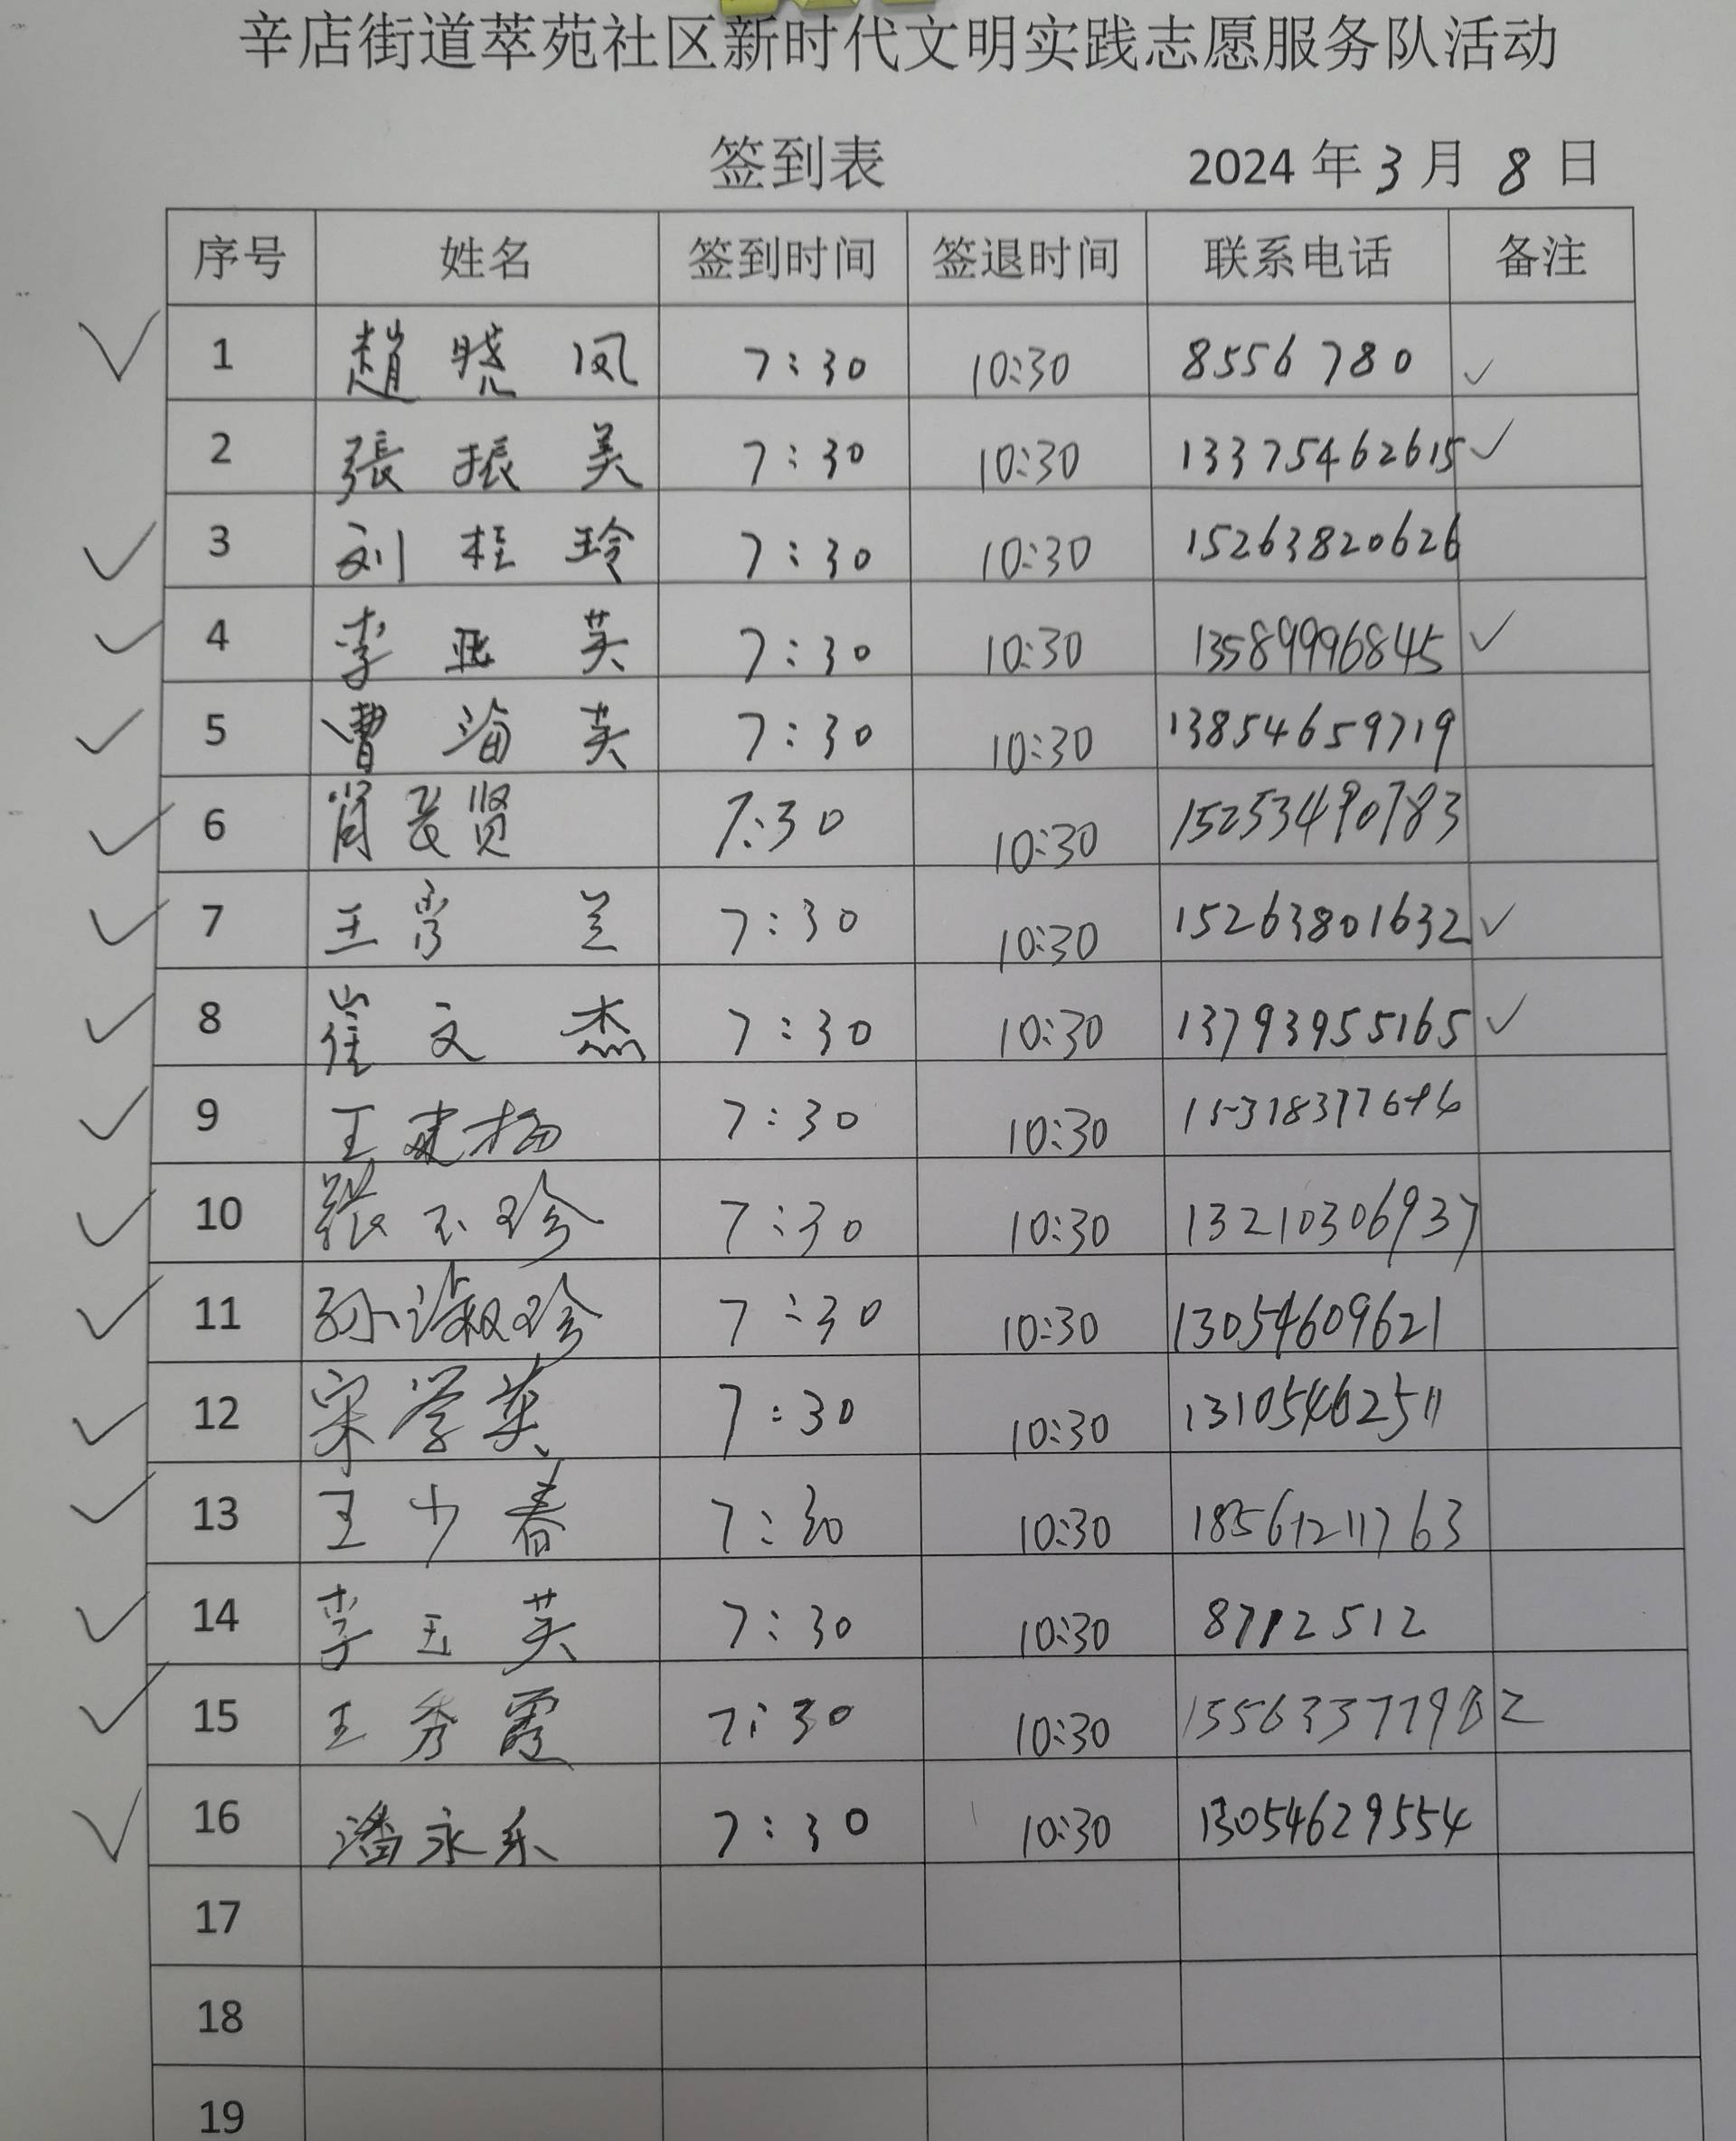 辛店街道萃苑社区新时代文明实践志愿服务队活动
签到表 2024年3月8日
序号 姓名 签到时间 签退时间 联系电话 备注
✓ 1 趙晓凤 7:30 10:30 8556780 ✓
2 張振美 7:30 10:30 13375462615 ✓
✓ 3 刘桂玲 7:30 10:30 15263820626
✓ 4 李亚英 7:30 10:30 13589996845 ✓
✓ 5 曹海英 7:30 10:30 13854659719
✓ 6 肖长贤 7:30 10:30 15253490783
✓ 7 王 兰 7:30 10:30 15263801632 ✓
✓ 8 崔文杰 7:30 10:30 13793955165 ✓
✓ 9 王建梅 7:30 10:30
✓ 10 張玉珍 7:30 10:30 13210306937
✓ 11 孙淑珍 7:30 10:30 13054609621
✓ 12 宋学英 7:30 10:30 13105462511
✓ 13 王少春 7:30 10:30 18561211763
✓ 14 李玉英 7:30 10:30 8712512
✓ 15 王秀霞 7:30 10:30
✓ 16 潘永乐 7:30 10:30 13054629554
17
18
19